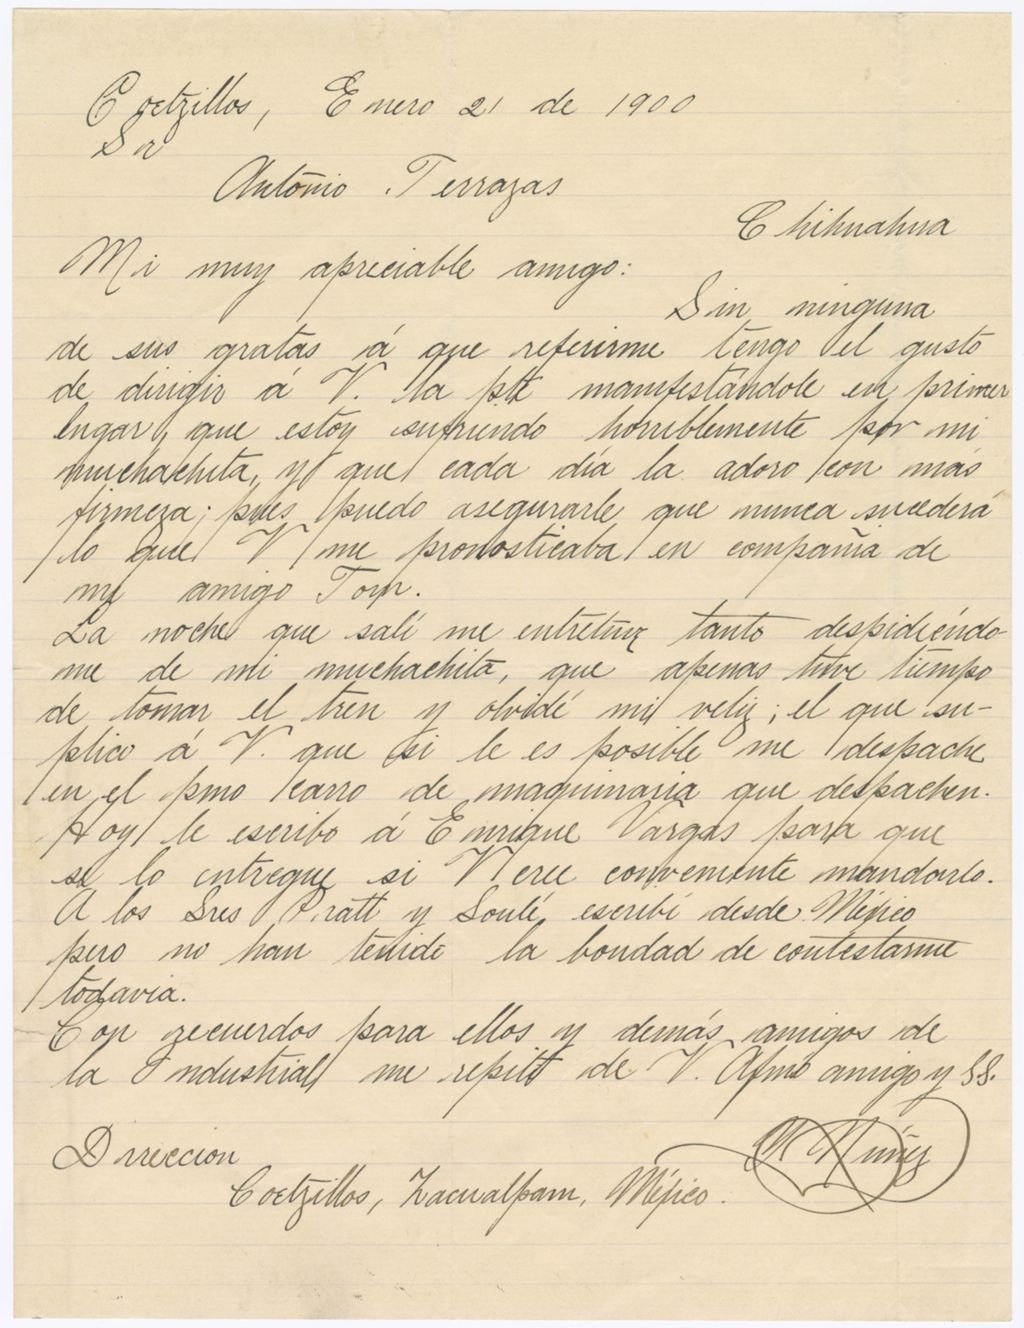 Coetzillos, Enero 21 de 1900
Sr
Antonio Terrazas
Chihuahua
Mi muy apreciable amigo:
Sin ninguna
de sus gratas á que referirme tengo el gusto
de dirigir á V. la pte manifestándole en primer
lugar, que estoy sufriendo horriblemente por mi
muchachita, y que cada día la adoro con más
firmeza; pues puedo asegurarle que nunca sucederá
lo que V me pronosticaba en compañia de
mi amigo Tom.
La noche que salí me entretuve tanto despidiéndo
me de mi muchachita, que apenas tuve tiempo
de tomar el tren y olvidé mi veliz; el que su-
plico á V. que si le es posible me despache
en el pmo carro de maquinaria que despachen.
Hoy le escribo á Enrique Vargas para que
se lo entregue si V cree conveniente mandarlo.
A los Sres Pratt y Soulé, escribí desde México
pero no han tenido la bondad de contestarme
todavia.
Con recuerdos para ellos y demás amigos de
la Industrial me repito de V. Afmo amigo y SS.
Núñez
Direccion
Coetzillos, Zacualpam, México.